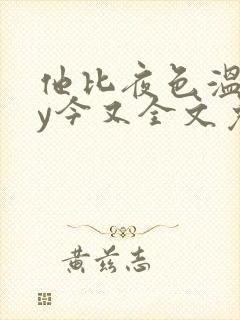 他比夜色温
y今又全文
黄兹志